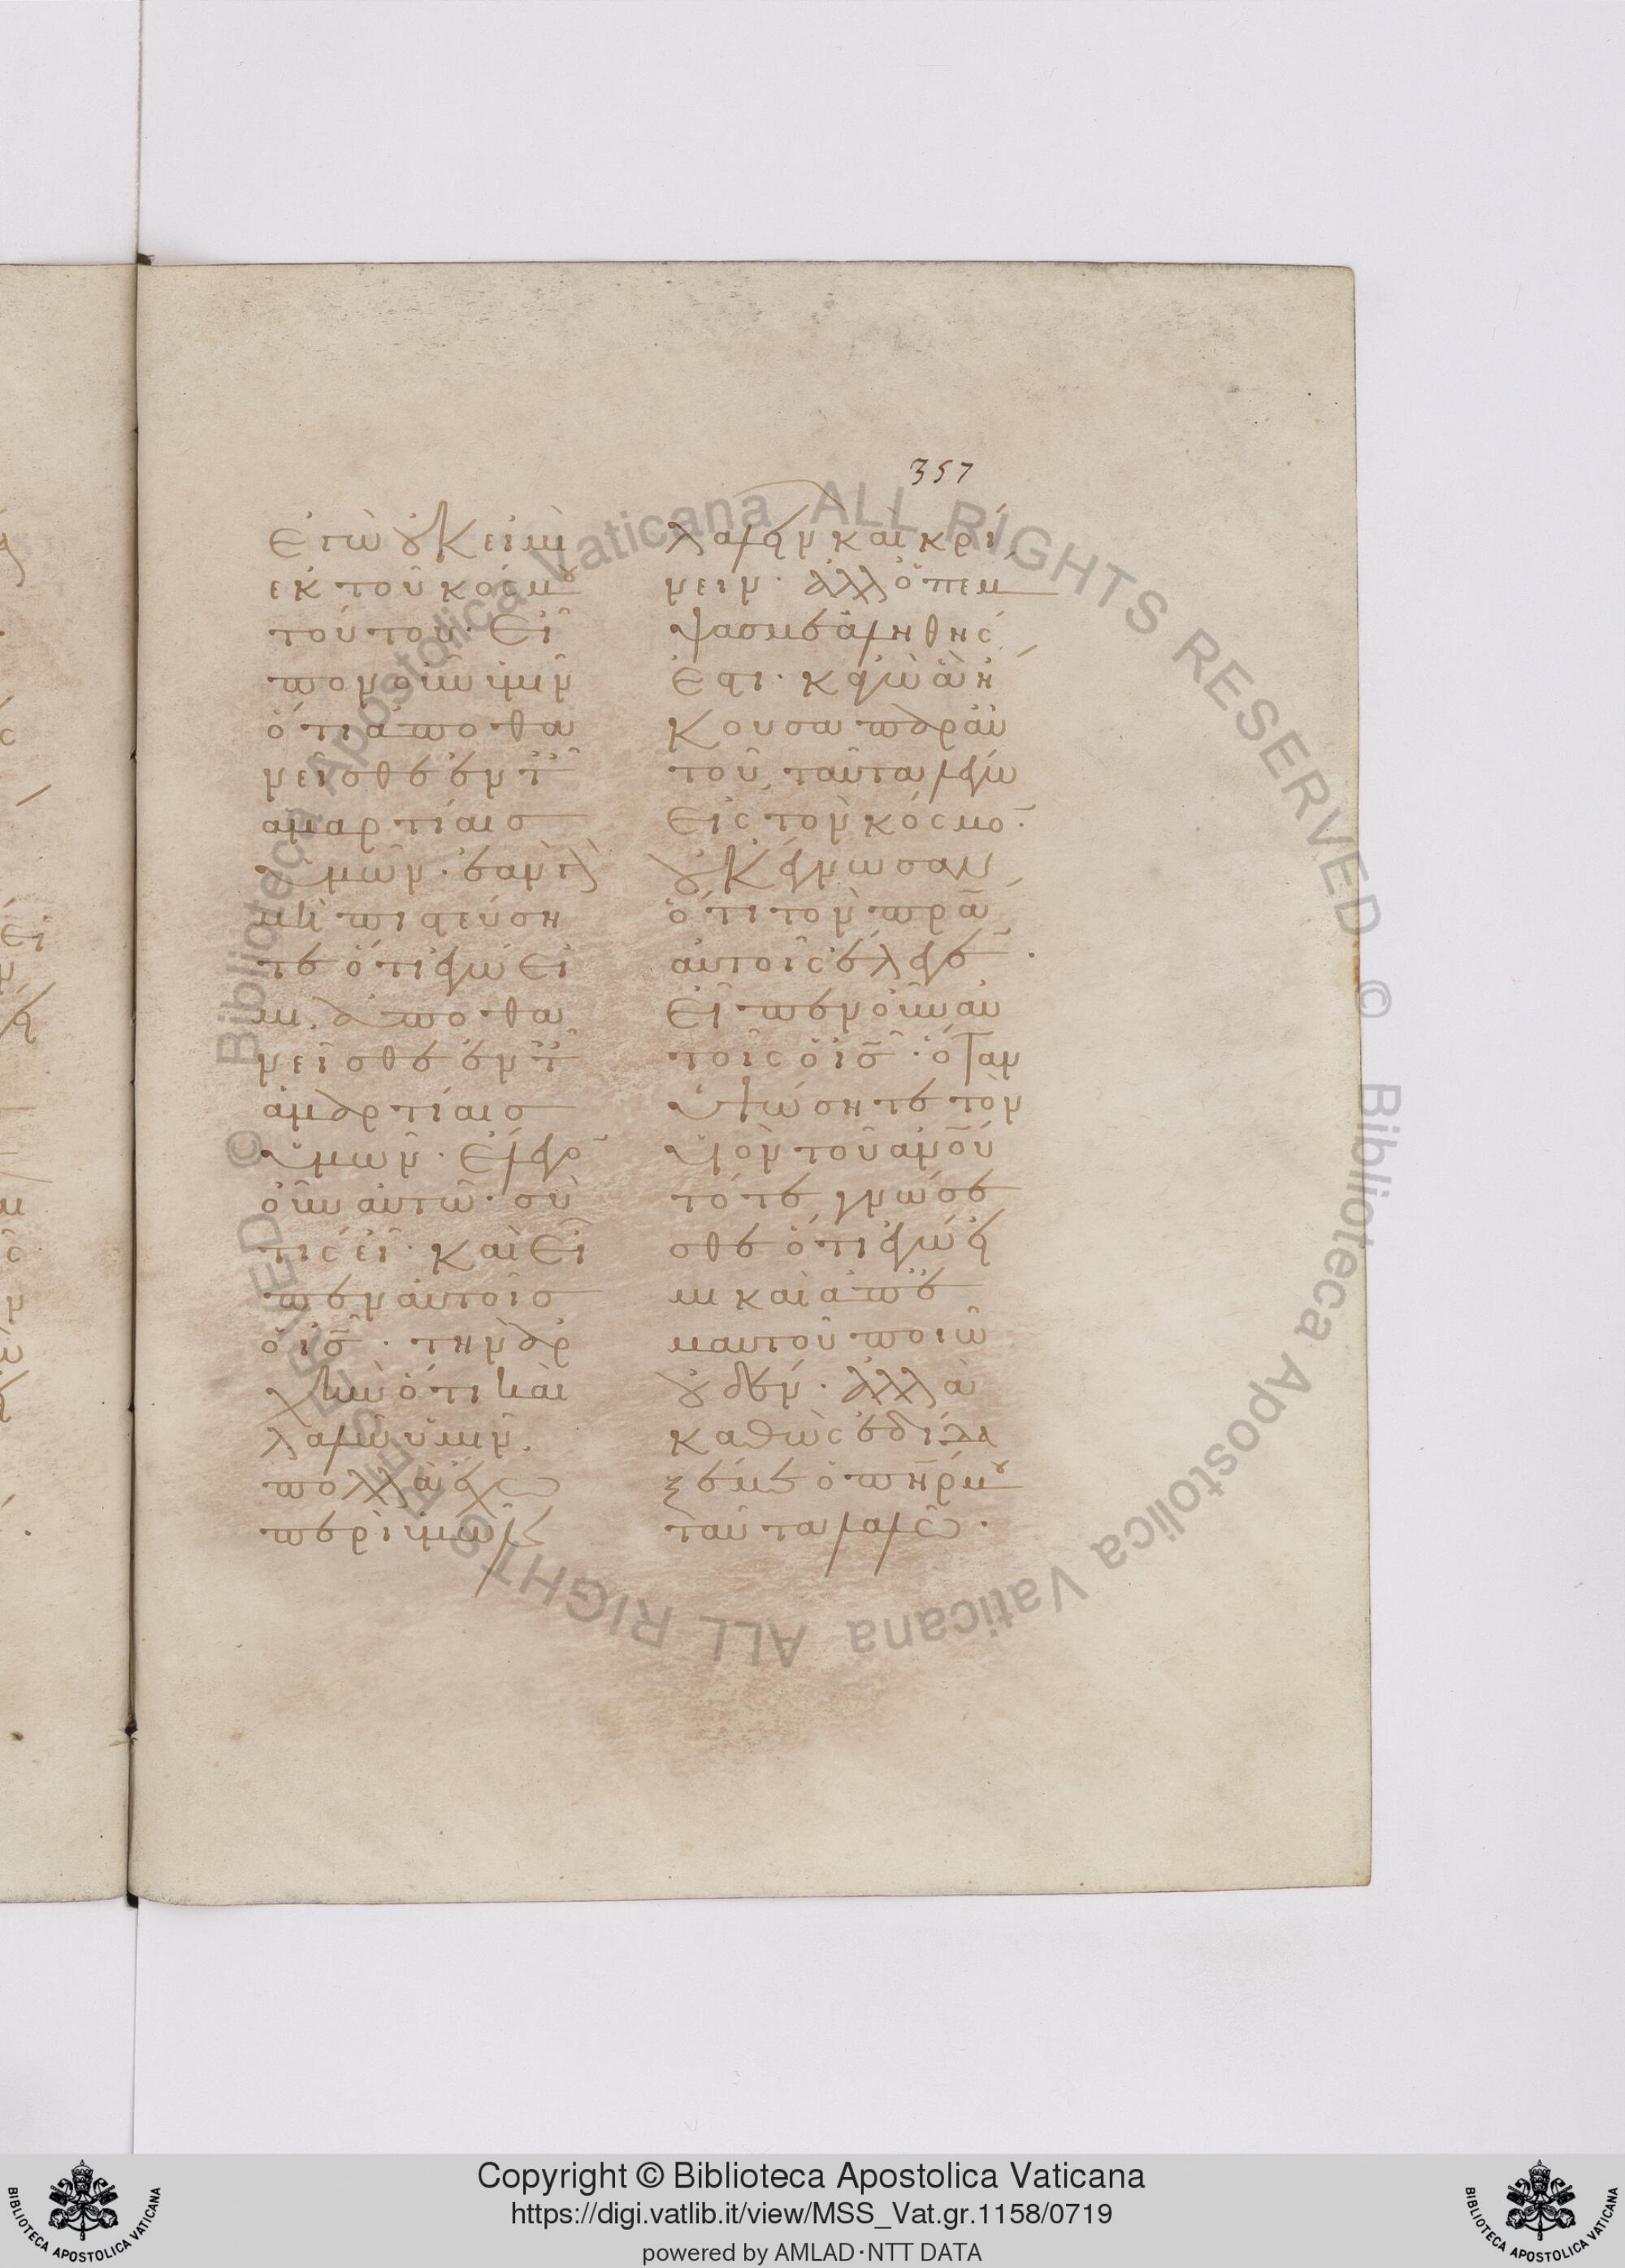 357
ἐγὼ οὐκ εἰμὶ
ἐκ τοῦ κόσμου
τούτου· εἶ
πον οὖν ὑμῖν
ὅτι ἀποθα
νεῖσθε ἐν τ(αῖς)
ἁμαρτίαις
ὑμῶν· ἐὰν γὰρ
μὴ πιστεύση
τε ὅτι ἐγώ εἰ
μι, ἀποθα
νεῖσθε ἐν τ(αῖς)
ἁμαρτίαις
ὑμῶν· ἔλεγο(ν)
οὖν αὐτῶ· σὺ
τίς εἶ· καὶ εἶ
πεν αὐτοῖς
ὁ ις̅· τὴν ἀρ
χὴν ὅτι καὶ
λαλῶ ὑμῖν.
πολλὰ ἔχω
περὶ ὑμῶν
λαλεῖν καὶ κρί
νειν· ἀλλ' ὁ πέμ
ψας με ἀληθής
ἐστι· κἀγὼ ἃ ἤ
κουσα παρ' αὐ
τοῦ, ταῦτα λέγω
εἰς τὸν κόσμο(ν)·
οὐκ ἔγνωσαν
ὅτι τὸν πρ̅α̅
αὐτοῖς ἔλεγε(ν)·
εἶπεν οὖν αὐ
τοῖς ὁ ις̅· ὅταν
ὑψώσητε τὸν
υἱὸν τοῦ ἀν̅ου̅
τότε γνώσε
σθε ὅτι ἐγώ εἰ
μι καὶ ἀπ' ἐ
μαυτοῦ ποιῶ
οὐδέν· ἀλλὰ
καθὼς ἐδίδα
ξέ με ὁ πη̅ρ̅ μου
ταῦτα λαλῶ·
Copyright © Biblioteca Apostolica Vaticana
https://digi.vatlib.it/view/MSS_Vat.gr.1158/0719
powered by AMLAD·NTT DATA
BIBLIOTECA APOSTOLICA VATICANA
BIBLIOTECA APOSTOLICA VATICANA
© Biblioteca Apostolica Vaticana ALL RIGHTS RESERVED © Biblioteca Apostolica Vaticana ALL RIGHTS RESERVED